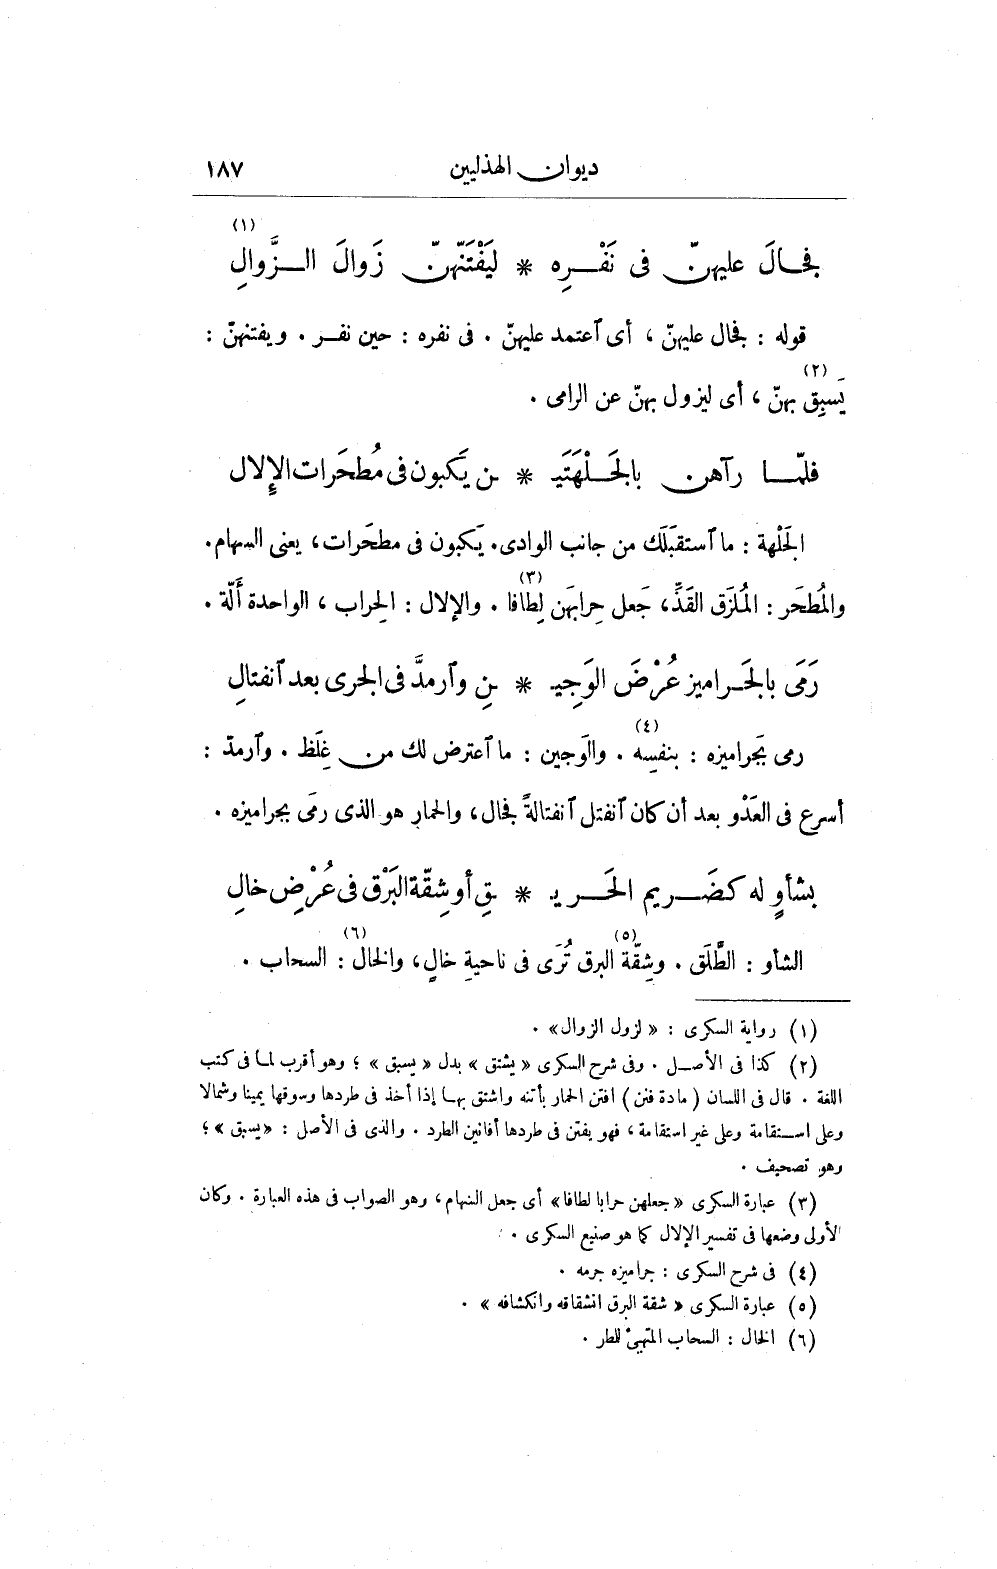 ديوان الهذليين ١٨٧
(١)
فجالَ عليهنّ فى نَفْـرِه * ليَفْتَنّهنّ زَوالَ الـزَّوالِ
قوله : فجال عليهنّ ، أى ٱعتمد عليهنّ . فى نفره : حين نفـر . ويفتنهنّ :
(٢)
يَسبِق بهنّ ، أى ليزول بهنّ عن الرامى .
فلمّـا رآهن بالجَـلْهَتَيـ * ـن يَكبون فى مُطحَرات الإِلال
الجَلْهة : ما ٱستقبَلَك من جانب الوادى. يَكبون فى مطحَرات، يعنى السهام.
(٣)
والمُطحَر : المُلزَق القَذِّ، جَعل حِرابَهن لِطافا . والإلال : الحِراب ، الواحدة أَلّة .
رَمَى بالجَـراميز عُرْضَ الوَجِيـ * ـنِ وٱرمدَّ فى الجرى بعد ٱنفتالِ
(٤)
رمى بجَراميزه : بنفسِه . والوَجين : ما ٱعترض لك من غِلَظ . وٱرمدّ :
أسرع فى العَدْو بعد أن كان ٱنفتل ٱنفتالةً فجال، والحمار هو الذى رمَى بجراميزه .
بشأوٍ له كضَـريم الحَـريـ * ـقِ أو شِقّة البَرْق فى عُرْضِ خالِ
(٥) (٦)
الشأو : الطَّلَق . وشِقّة البرق تُرَى فى ناحيةِ خالٍ، والخال : السحاب .
(١) رواية السكرى : « لزول الزوال» .
(٢) كذا فى الأصـل . وفى شرح السكرى « يشتق » بدل « يسبق » ؛ وهو أقرب لمـا فى كتب
اللغة . قال فى اللسان ( مادة فنن ) افتن الحمار بأتنه واشتق بهـا إذا أخذ فى طردها وسوقها يمينا وشمالا
وعلى اسـتقامة وعلى غير استقامة ، فهو يفتن فى طردها أفانين الطرد . والذى فى الأصل : «يسبق » ؛
وهو تصحيف .
(٣) عبارة السكرى « جعلهن حرابا لطافا» أى جعل السهام ، وهو الصواب فى هذه العبارة . وكان
الأولى وضعها فى تفسير الإلال كما هو صنيع السكرى .
(٤) فى شرح السكرى : جراميزه جرمه .
(٥) عبارة السكرى « شقة البرق انشقاقه وانكشافه » .
(٦) الخال : السحاب المتهيئ للمطر .